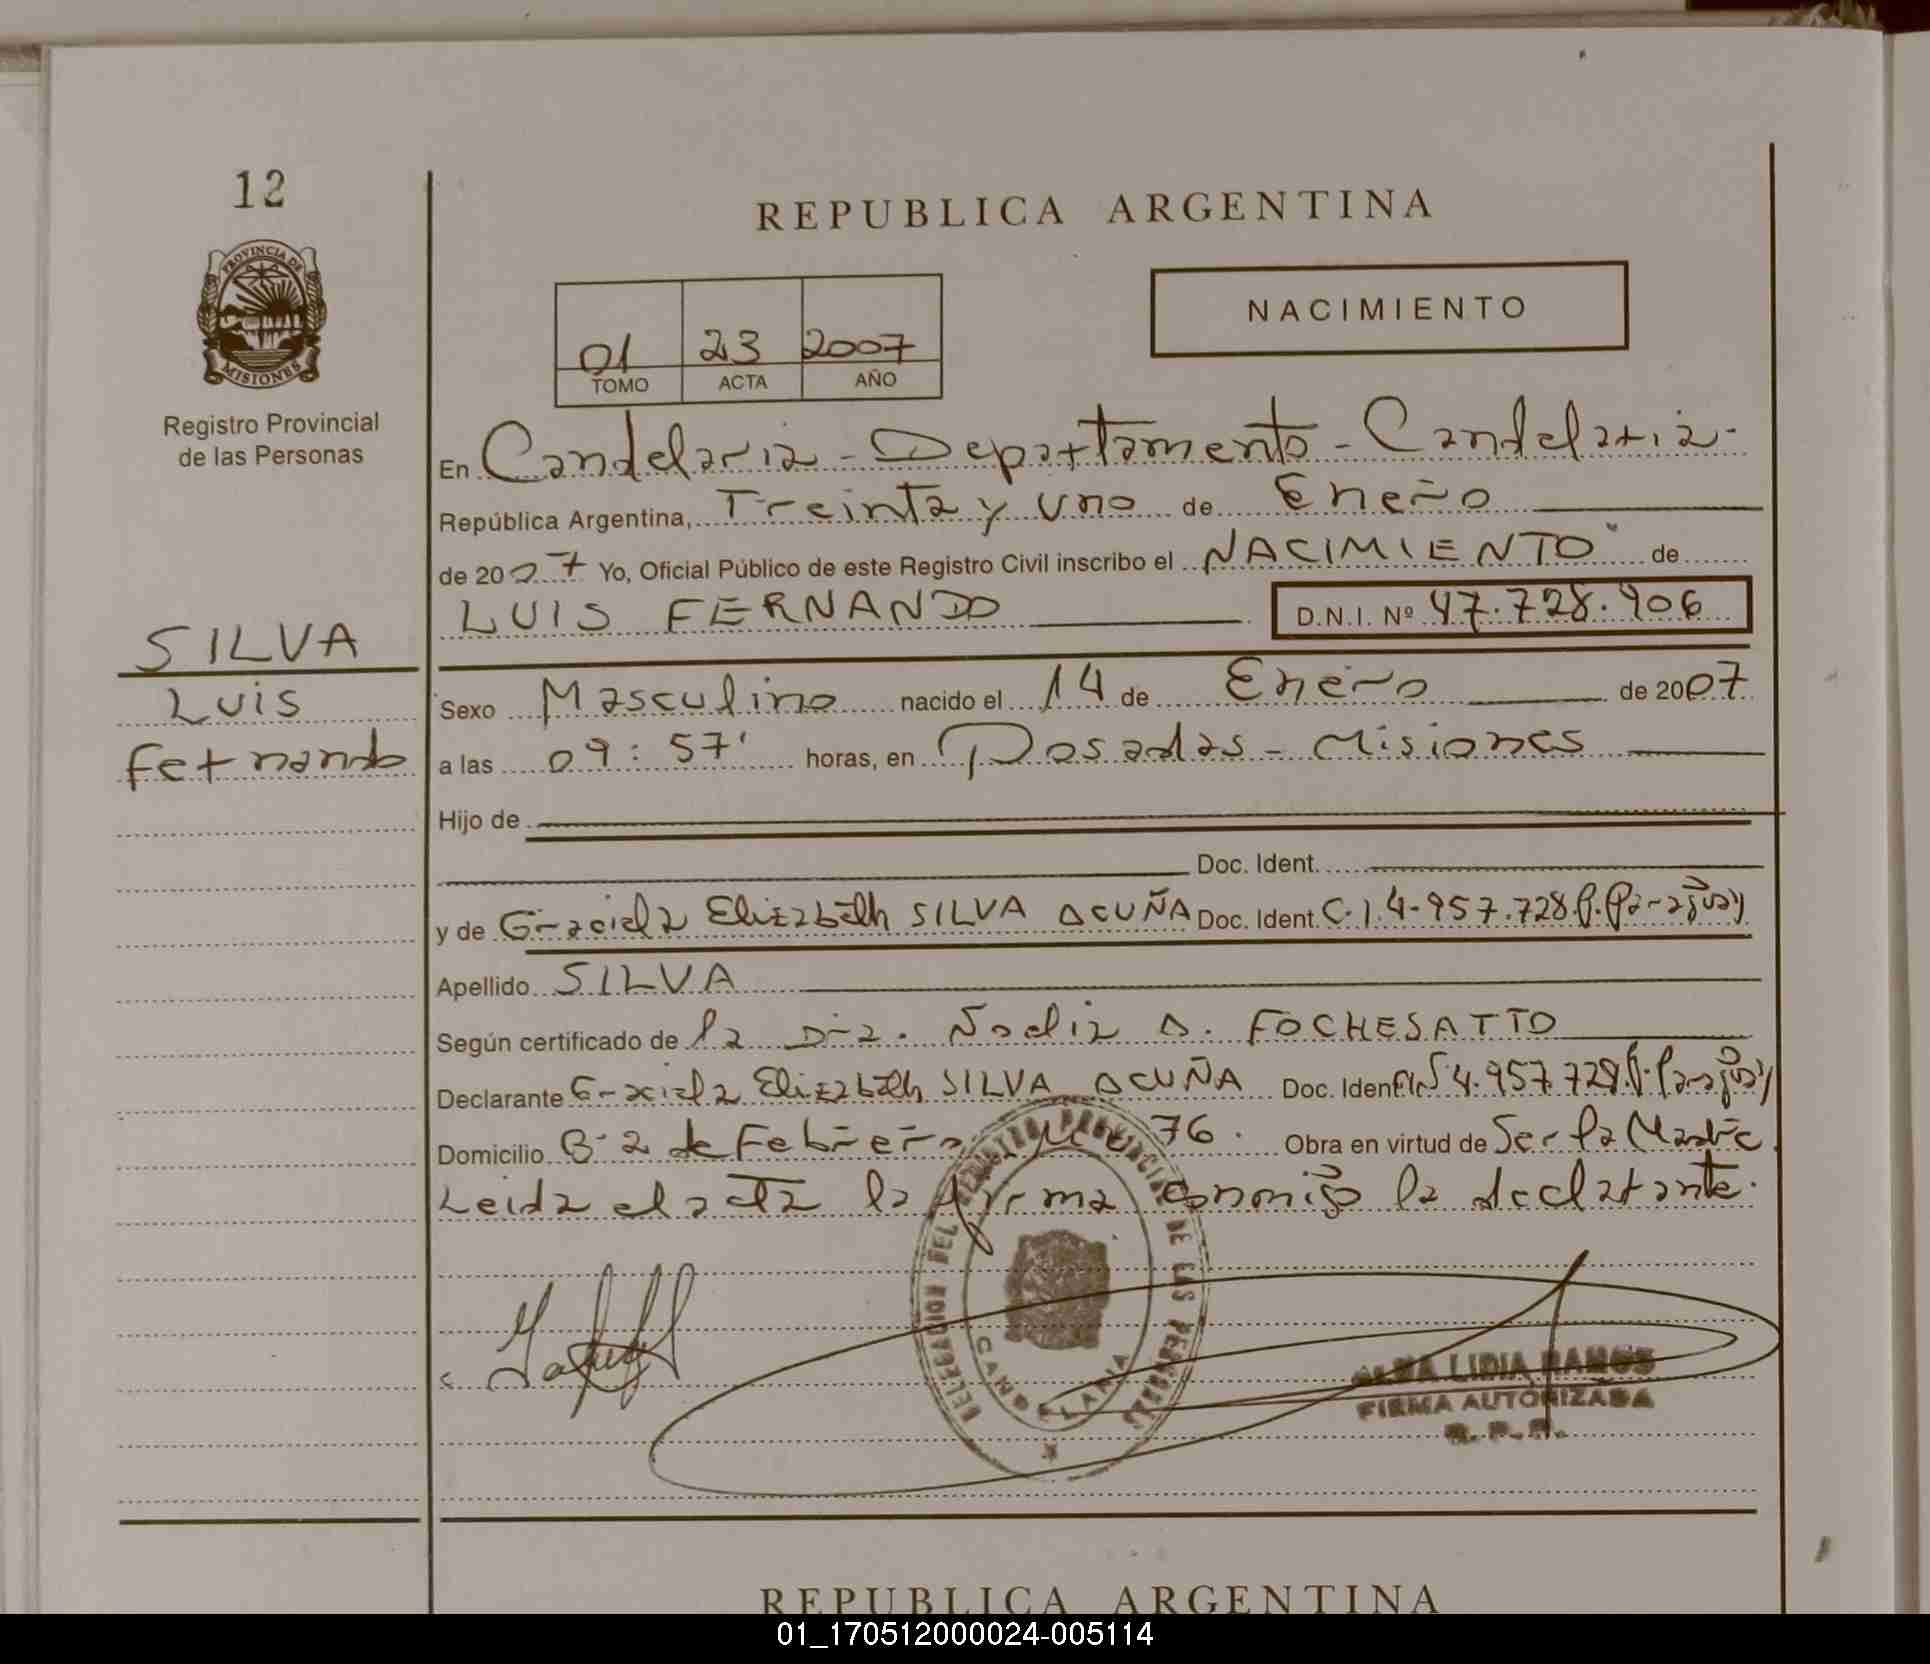 12
PROVINCIA DE
MISIONES
Registro Provincial
de las Personas
REPUBLICA ARGENTINA
NACIMIENTO
01 23 2007
TOMO ACTA AÑO
En Candelaria - Departamento - Candelaria -
República Argentina, Treinta y uno de Enero
de 2007 Yo, Oficial Público de este Registro Civil inscribo el "NACIMIENTO" de
LUIS FERNANDO D.N.I. Nº 47.728.906
SILVA
Luis
Fernando
Sexo Masculino nacido el 14 de Enero de 2007
a las 09:57' horas, en Posadas - Misiones
Hijo de
Doc. Ident.
y de Graciela Elizabeth SILVA ACUÑA Doc. Ident. C.I. 4.957.728 P. Paraguay
Apellido SILVA
Según certificado de la Dra. Nadia A. FOCHESATTO
Declarante Graciela Elizabeth SILVA ACUÑA Doc. Ident. 4.957.728 P. Paraguay
Domicilio B- 2 de Febrero 76. Obra en virtud de Ser la Madre.
Leida el acta la firma conmigo la declarante.
DELEGACION DEL REGISTRO PROVINCIAL DE LAS PERSONAS
CANDELARIA
ALBA LIDIA RAMOS
FIRMA AUTORIZADA
R. P. P.
REPUBLICA ARGENTINA
01_170512000024-005114